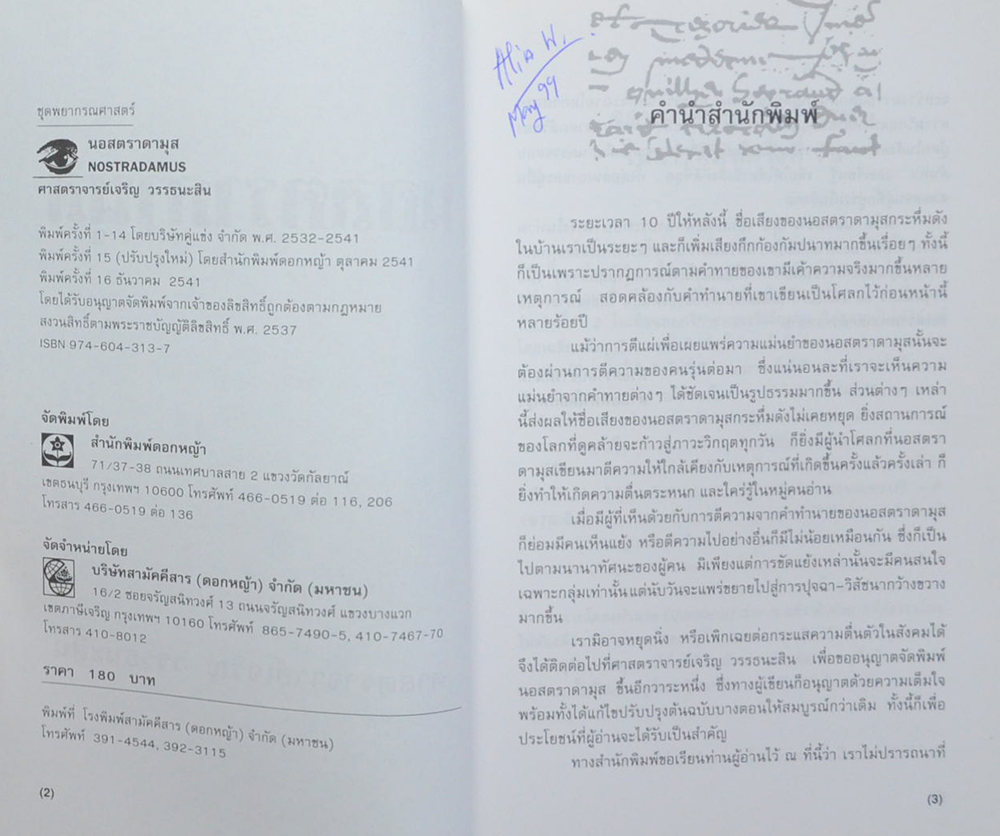 ชุดพยากรณศาสตร์
นอสตราดามุส
NOSTRADAMUS
ศาสตราจารย์เจริญ วรรธนะสิน
พิมพ์ครั้งที่ 1-14 โดยบริษัทคู่แข่ง จำกัด พ.ศ. 2532-2541
พิมพ์ครั้งที่ 15 (ปรับปรุงใหม่) โดยสำนักพิมพ์ดอกหญ้า ตุลาคม 2541
พิมพ์ครั้งที่ 16 ธันวาคม 2541
โดยได้รับอนุญาตจัดพิมพ์จากเจ้าของลิขสิทธิ์ถูกต้องตามกฎหมาย
สงวนสิทธิ์ตามพระราชบัญญัติลิขสิทธิ์ พ.ศ. 2537
ISBN 974-604-313-7
จัดพิมพ์โดย
สำนักพิมพ์ดอกหญ้า
71/37-38 ถนนเทศบาลสาย 2 แขวงวัดกัลยาณ์
เขตธนบุรี กรุงเทพฯ 10600 โทรศัพท์ 466-0519 ต่อ 116, 206
โทรสาร 466-0519 ต่อ 136
จัดจำหน่ายโดย
บริษัทสามัคคีสาร (ดอกหญ้า) จำกัด (มหาชน)
16/2 ซอยจรัญสนิทวงศ์ 13 ถนนจรัญสนิทวงศ์ แขวงบางแวก
เขตภาษีเจริญ กรุงเทพฯ 10160 โทรศัพท์ 865-7490-5, 410-7467-70
โทรสาร 410-8012
ราคา 180 บาท
พิมพ์ที่ โรงพิมพ์สามัคคีสาร (ดอกหญ้า) จำกัด (มหาชน)
โทรศัพท์ 391-4544, 392-3115
(2)
May 99
คำนำสำนักพิมพ์
ระยะเวลา 10 ปีให้หลังนี้ ชื่อเสียงของนอสตราดามุสกระหึ่มดัง
ในบ้านเราเป็นระยะๆ และก็เพิ่มเสียงกึกก้องกัมปนาทมากขึ้นเรื่อยๆ ทั้งนี้
ก็เป็นเพราะปรากฏการณ์ตามคำทายของเขามีเค้าความจริงมากขึ้นหลาย
เหตุการณ์ สอดคล้องกับคำทำนายที่เขาเขียนเป็นโศลกไว้ก่อนหน้านี้
หลายร้อยปี
แม้ว่าการตีแผ่เพื่อเผยแพร่ความแม่นยำของนอสตราดามุสนั้นจะ
ต้องผ่านการตีความของคนรุ่นต่อมา ซึ่งแน่นอนละที่เราจะเห็นความ
แม่นยำจากคำทายต่างๆ ได้ชัดเจนเป็นรูปธรรมมากขึ้น ส่วนต่างๆ เหล่า
นี้ส่งผลให้ชื่อเสียงของนอสตราดามุสกระหึ่มดังไม่เคยหยุด ยิ่งสถานการณ์
ของโลกที่ดูคล้ายจะก้าวสู่ภาวะวิกฤตทุกวัน ก็ยิ่งมีผู้นำโศลกที่นอสตรา
ดามุสเขียนมาตีความให้ใกล้เคียงกับเหตุการณ์ที่เกิดขึ้นครั้งแล้วครั้งเล่า ก็
ยิ่งทำให้เกิดความตื่นตระหนก และใคร่รู้ในหมู่คนอ่าน
เมื่อมีผู้ที่เห็นด้วยกับการตีความจากคำทำนายของนอสตราดามุส
ก็ย่อมมีคนเห็นแย้ง หรือตีความไปอย่างอื่นก็มีไม่น้อยเหมือนกัน ซึ่งก็เป็น
ไปตามนานาทัศนะของผู้คน มิเพียงแต่การขัดแย้งเหล่านั้นจะมีคนสนใจ
เฉพาะกลุ่มเท่านั้น แต่นับวันจะแพร่ขยายไปสู่การปุจฉา-วิสัชนากว้างขวาง
มากขึ้น
เรามิอาจหยุดนิ่ง หรือเพิกเฉยต่อกระแสความตื่นตัวในสังคมได้
จึงได้ติดต่อไปที่ศาสตราจารย์เจริญ วรรธนะสิน เพื่อขออนุญาตจัดพิมพ์
นอสตราดามุส ขึ้นอีกวาระหนึ่ง ซึ่งทางผู้เขียนก็อนุญาตด้วยความเต็มใจ
พร้อมทั้งได้แก้ไขปรับปรุงต้นฉบับบางตอนให้สมบูรณ์กว่าเดิม ทั้งนี้ก็เพื่อ
ประโยชน์ที่ผู้อ่านจะได้รับเป็นสำคัญ
ทางสำนักพิมพ์ขอเรียนท่านผู้อ่านไว้ ณ ที่นี้ว่า เราไม่ปรารถนาที่
(3)